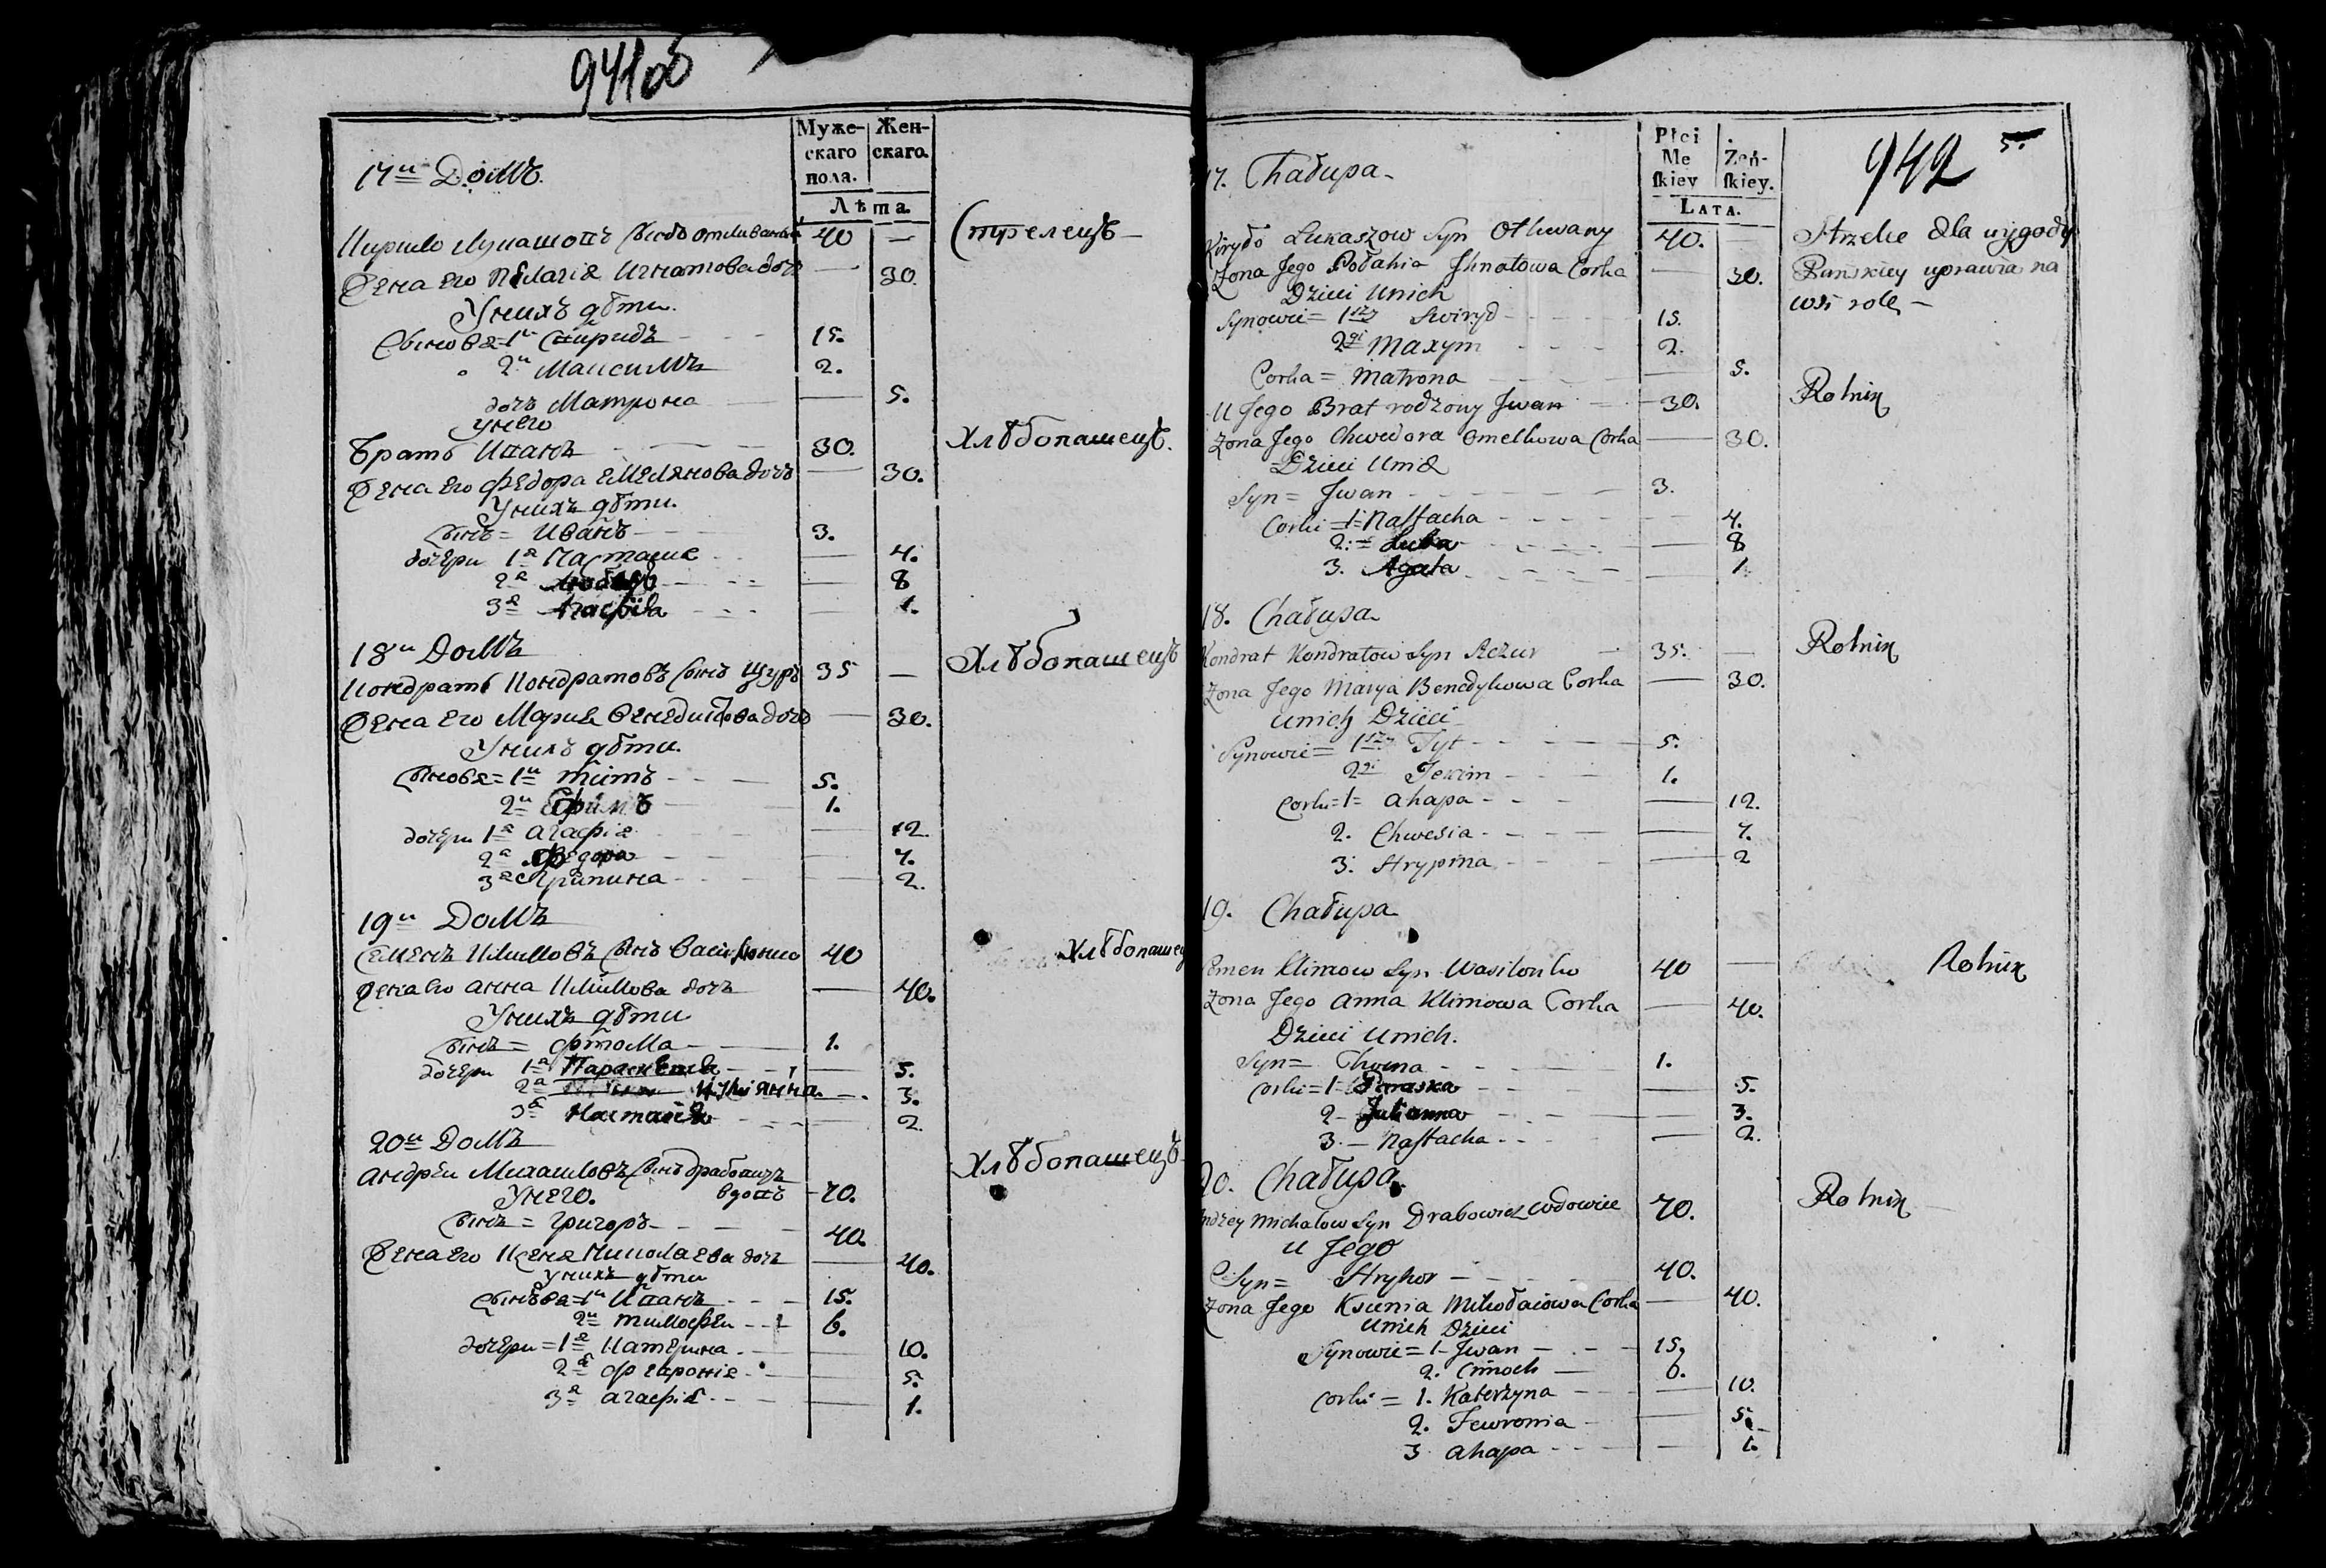 941об
Муже-
скаго
пола.
Жен-
скаго.
Лѣта.
17й Домъ.
Кирило Лукашовъ сынъ 40 — Стрелецъ —
Жена его Пелагія Игнатова дочь — 30.
У нихъ дѣти.
Сыновя = 1й Спиридъ - - 15.
2й Максимъ 2.
дочь Матрона — 5.
у него
Братъ Иванъ 30. Хлѣбопашецъ.
Жена его Федора Емелянова дочь — 30.
У нихъ дѣти.
Сынъ = Иванъ — 3.
дочери 1я Настасия — 4.
2я Любовь — 8
3я Агафія — 1.
18й Домъ Хлѣбопашецъ
Кондратъ Кондратовъ сынъ Щуръ 35 —
Жена его Мария Венедиктова дочь — 30.
У нихъ дѣти.
Сыновя = 1й Титъ - - 5.
2й Ефимъ 1.
дочери 1я Агафія — 12.
2я Федора — 7.
3я Грипина — 2.
19й Домъ
Семенъ Климовъ сынъ Василонко 40 Хлѣбопашец
Жена его Анна Климова дочь — 40.
У нихъ дѣти
Сынъ = Фтома — 1.
дочери 1я Параскевия — 5.
2я Иулиянна — 3.
3я Настасия — 2.
20й Домъ Хлѣбопашецъ
Андрей Михаиловъ сынъ Драбовичъ
У него. вдовъ 70.
Сынъ = Григоръ — 40.
Жена его Ксеня Николаева дочь — 40.
У нихъ дѣти
Сыновя = 1й Иванъ - - 15.
2й Тимофей - - 6.
дочери = 1я Катерина — 10.
2я Февронія — 5.
3я Агафія — 1.
Płci
Me
ſkiey
Żeń-
ſkiey.
LATA.
942 5.
17. Chałupa
Kiryło Lukaszow Syn Otliwany 40. — Strzelec dla wygody
Żona Jego Połahia Jhnatowa Corka — 30. Pańskiey uprawia na
Dzieci u nich wsi rolę —
Synowie = 1szy Swiryd - - 15.
2gi Maxym 2.
Corka = Matrona — 5.
U Jego Brat rodzony Jwan — 30. Rolnik
Żona Jego Chwedora Omelkowa Corka — 30.
Dzieci u nich
Syn = Jwan - - 3.
Corki = 1 = Naſtacha — 4.
2. = Luba — 8
3. Agata — 1.
18. Chałupa
Kondrat Kondratow Syn Szczur 35. — Rolnik
Żona Jego Marya Benedykowa Corka — 30.
u nich Dzieci
Synowie = 1szy Tyt - - 5.
2gi Jewim - - 1.
Corki = 1 = Ahapa - - 12.
2. Chwesia - - 7.
3. Hrypina - - 2
19. Chałupa
Semen Klimow Syn Wasilonko 40 — Rolnik
Żona Jego Anna Klimowa Corka — 40.
Dzieci u nich.
Syn = Choma - - 1.
Corki = 1 = Paraska - - 5.
2 - Julianna - - 3.
3. — Naſtacha - - 2.
20. Chałupa.
Andrzey Michałow Syn Drabowicz wdowiec 70. Rolnik
u Jego
Syn = Hryhor — 40.
Żona Jego Ksenia Mikołaiowa Corka — 40.
u nich Dzieci
Synowie = 1 - Jwan — 15.
2. Cimoch — 6.
Corki = 1. Katerżyna — 10.
2. Fewronia — 5.
3. Ahapa - - 1.